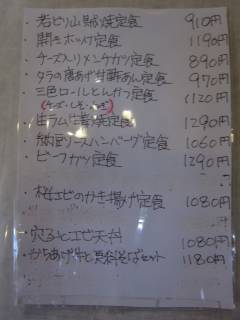 ・若どり山賊焼定食 910円
・開きホッケ定食 1190円
・チーズ入りメンチカツ定食 890円
・タラの唐あげ甘酢あん定食 970円
・三色ロールとんかつ定食 1120円
・生ラム生姜焼定食 1290円
・納豆ソースハンバーグ定食 1060円
・ビーフカツ定食 1290円
・桜エビのかき揚げ定食 1080円
・穴子とエビ天丼 1080円
・からあげ丼と更科そばセット 1180円